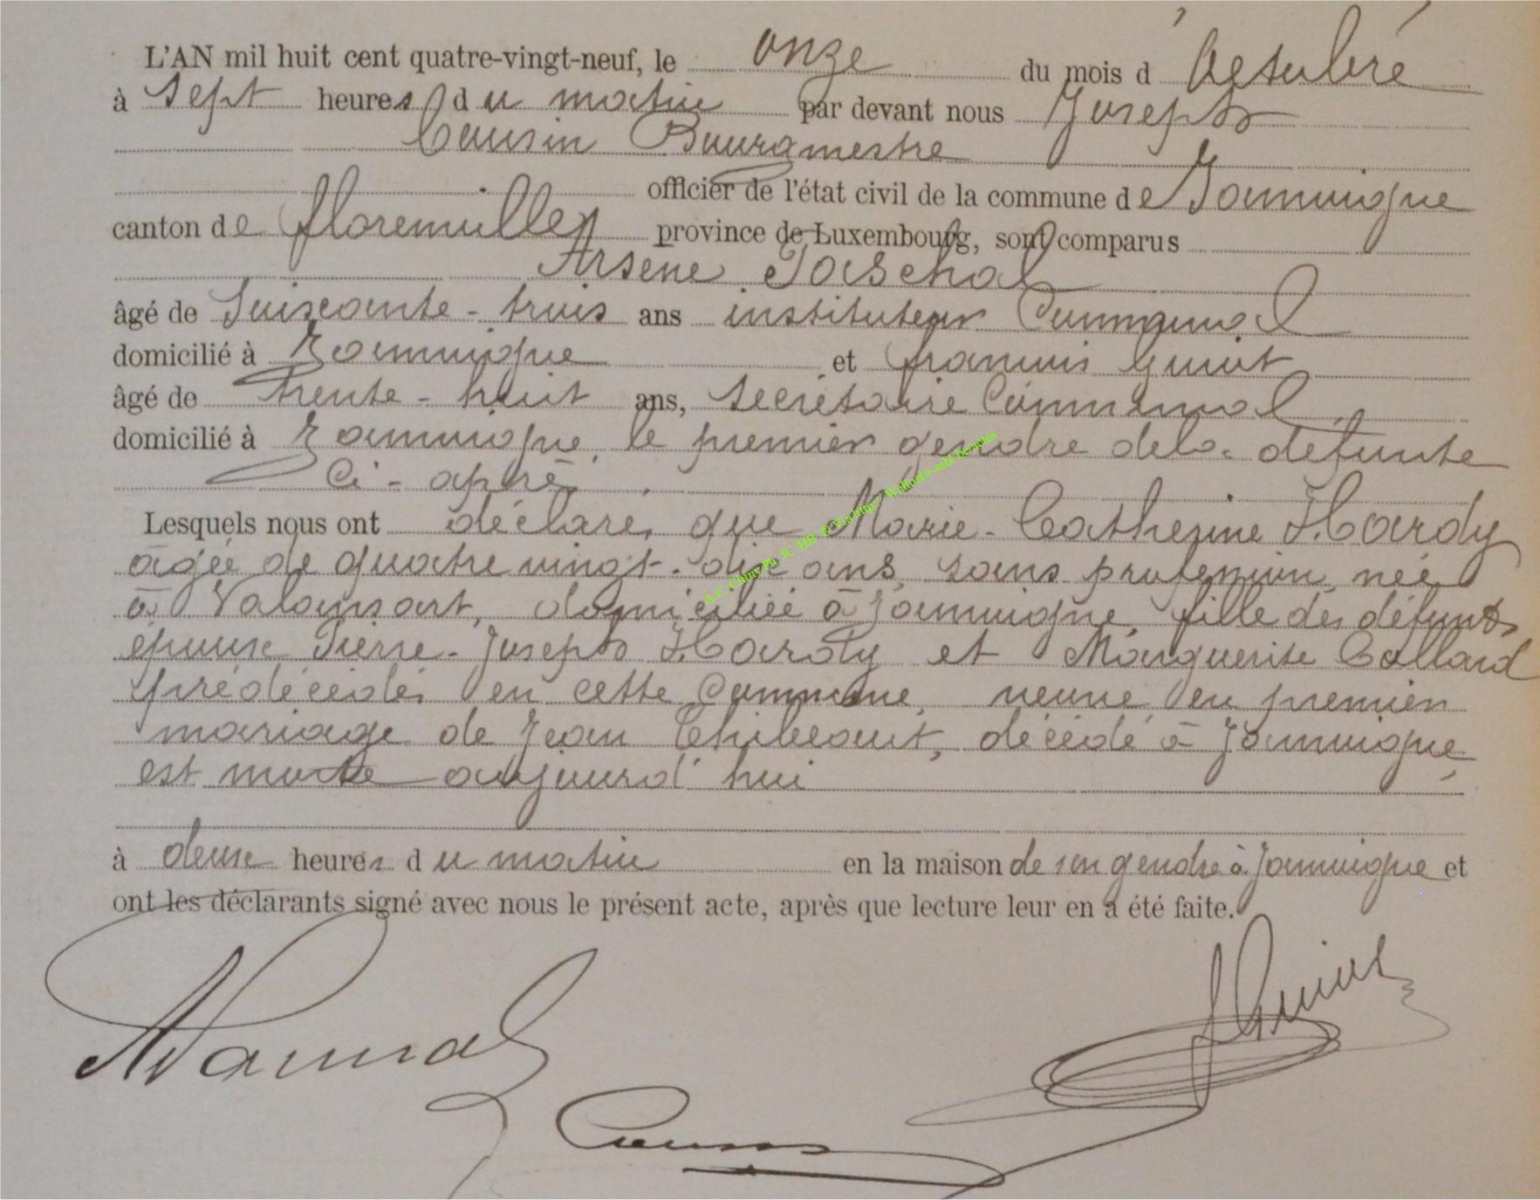 L'AN mil huit cent quatre-vingt-neuf, le onze du mois d'Octobre
à sept heures du matin par devant nous Joseph
Cousin Bourgmestre
officier de l'état civil de la commune de Jamoigne
canton de florenville province de Luxembourg, sont comparus
Arsène Paschal
âgé de Soixante-trois ans instituteur Communal
domicilié à Jamoigne et françois Guiot
âgé de trente-huit ans, Secrétaire Communal
domicilié à Jamoigne, le premier gendre de la défunte
Ci-après
Lesquels nous ont déclaré, que Marie-Catherine Hardy
âgée de quatre vingt-dix ans, sans profession, née
à Valansart, domiciliée à Jamoigne, fille des défunts
époux Pierre-Joseph Hardy et Marguerite Collard
prédécédés en cette Commune, veuve en premier
mariage de Jean Thibeaut, décédé à Jamoigne,
est morte aujourd'hui
à deux heures du matin en la maison de son gendre à Jamoigne et
ont les déclarants signé avec nous le présent acte, après que lecture leur en a été faite.
APaschal
f Guiot
Cousin